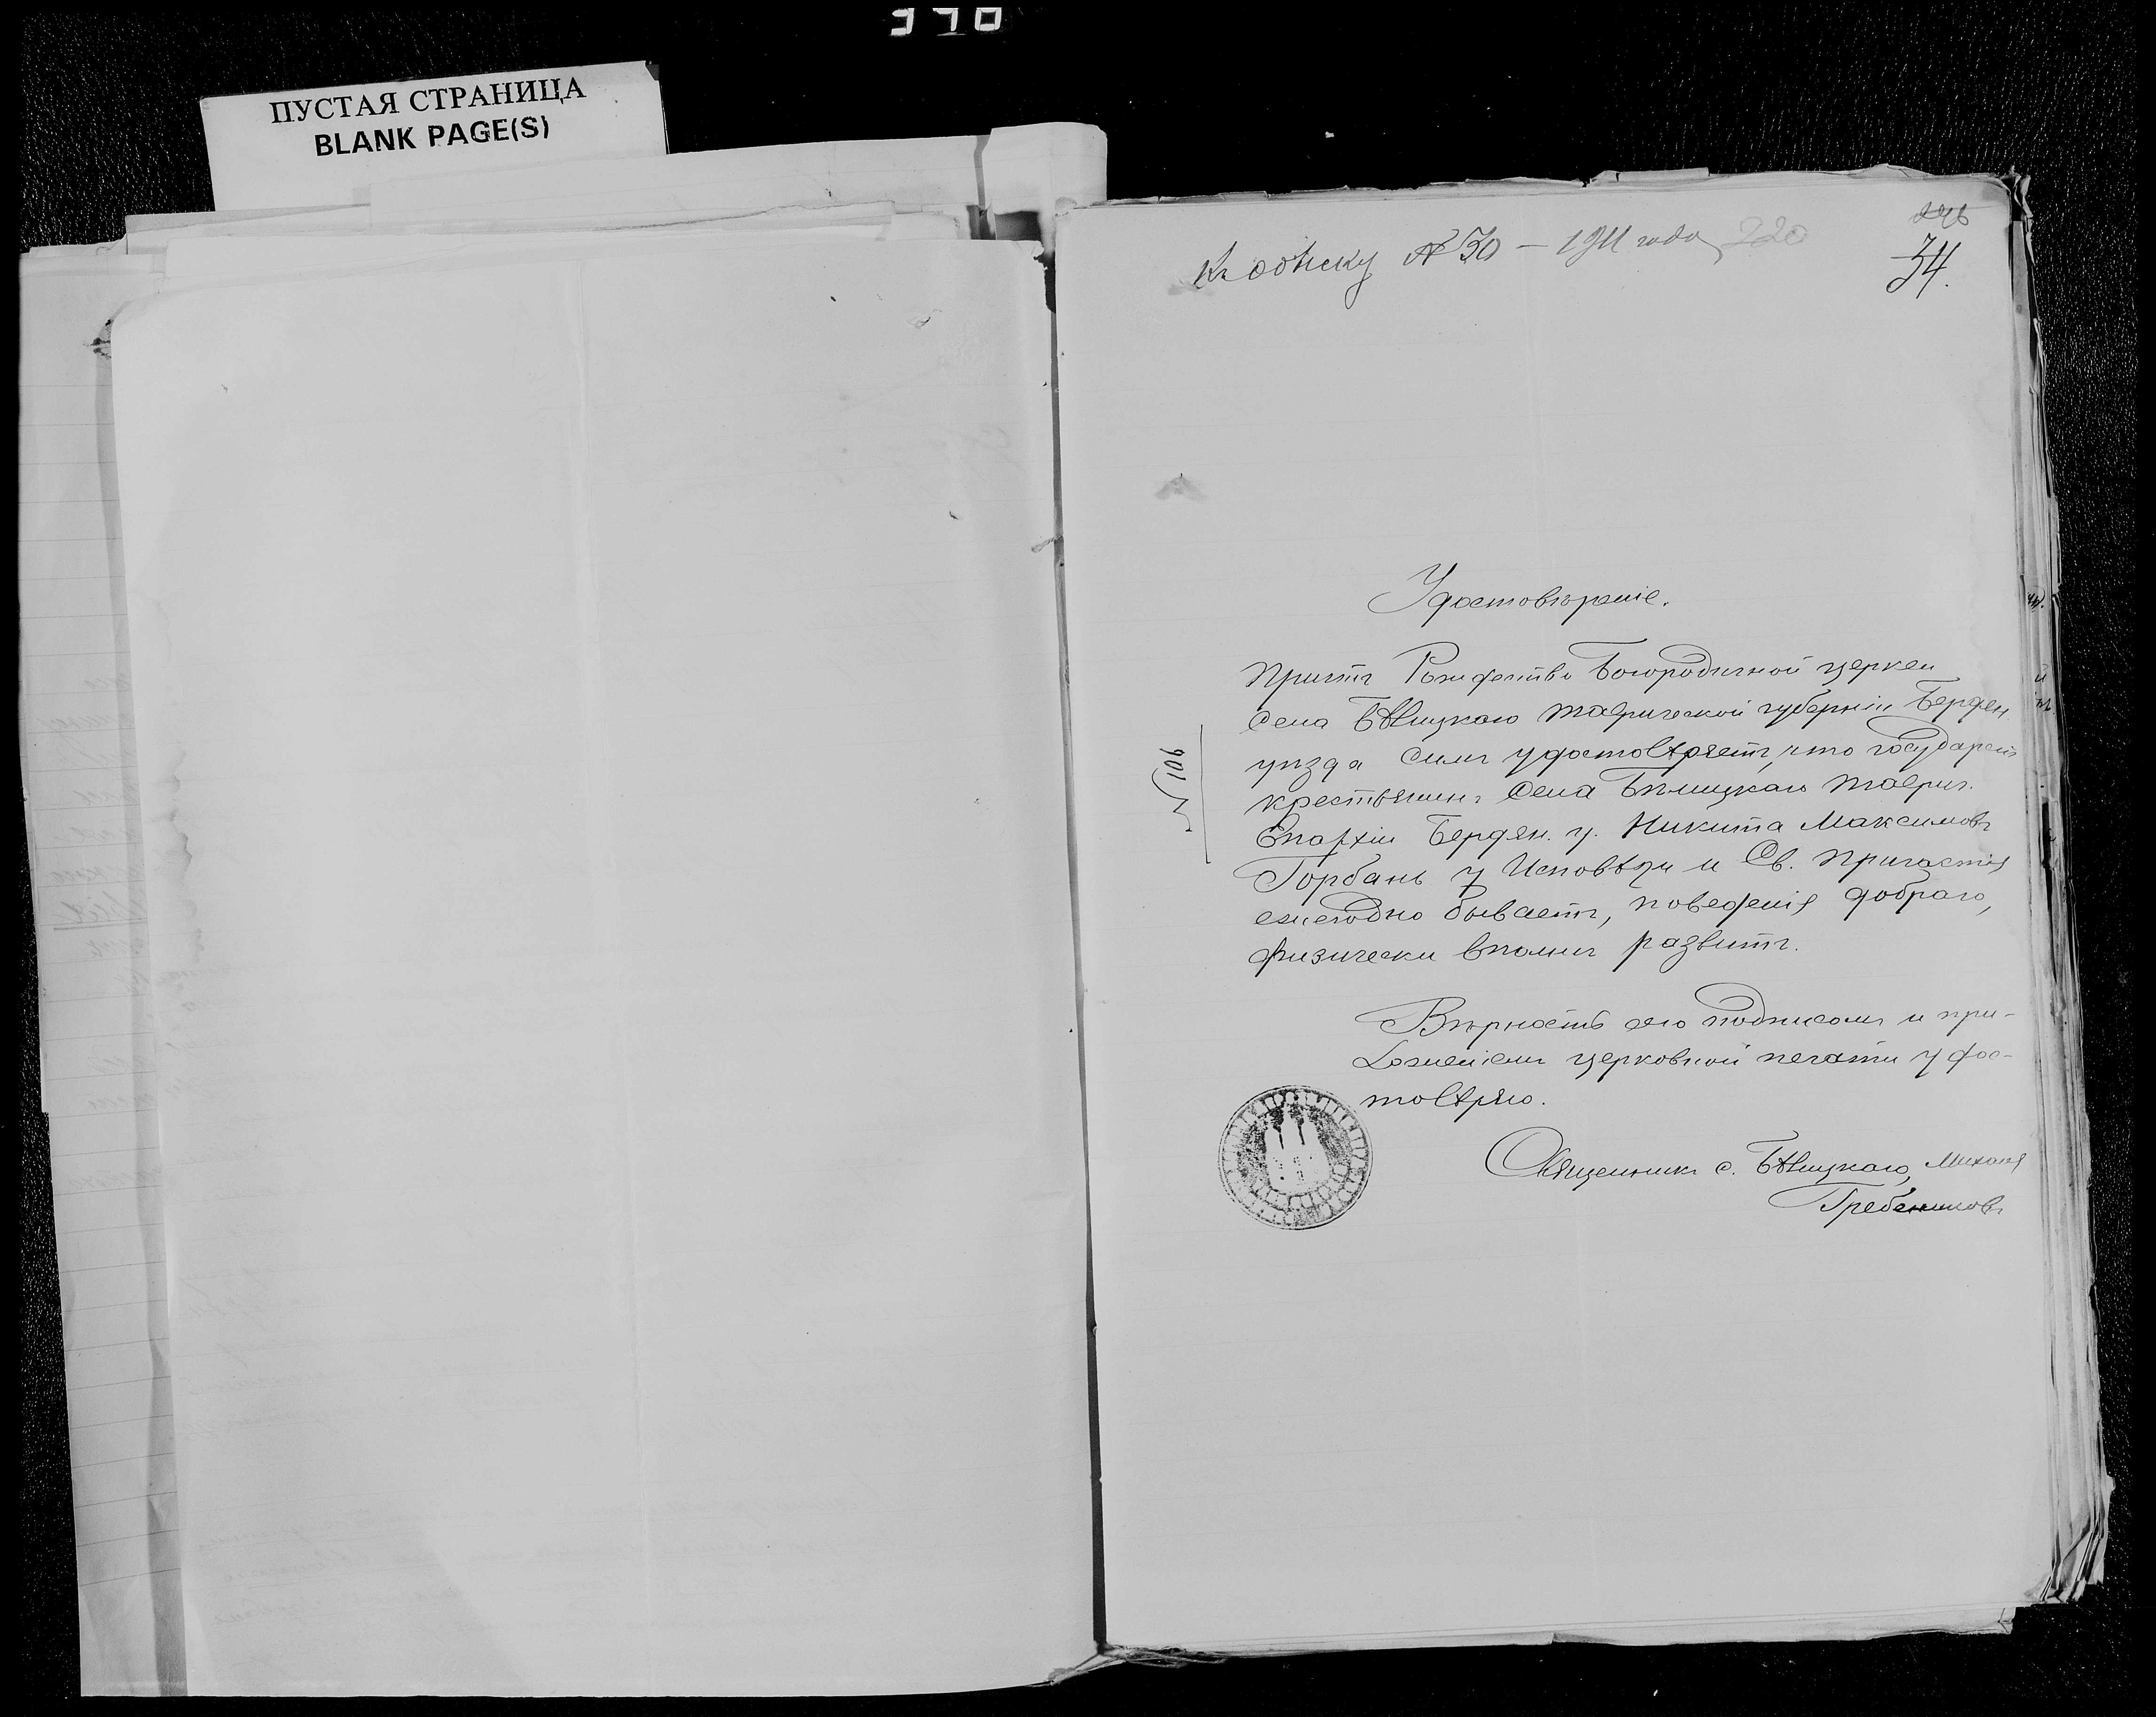 370
ПУСТАЯ СТРАНИЦА
BLANK PAGE(S)
Къ обыску № 30 – 1911 года 220
246
34.
Удостовѣреніе.
Причтъ Рождество Богородичной церкви
села Бѣлицкаго Таврической губерніи Бердян.
уѣзда симъ удостовѣряетъ, что государст.
крестьянинъ села Бѣлицкаго Таврич.
Епархіи Бердян. у. Никита Максимовъ
Горбань у Исповѣди и Св. Причастія
ежегодно бываетъ, поведенія добраго,
физически вполнѣ развитъ.
№ 106
Вѣрность сего подписомъ и при-
ложеніемъ церковной печати удос-
товѣряю.
Священникъ с. Бѣлицкаго, Михаил
Гребенниковъ